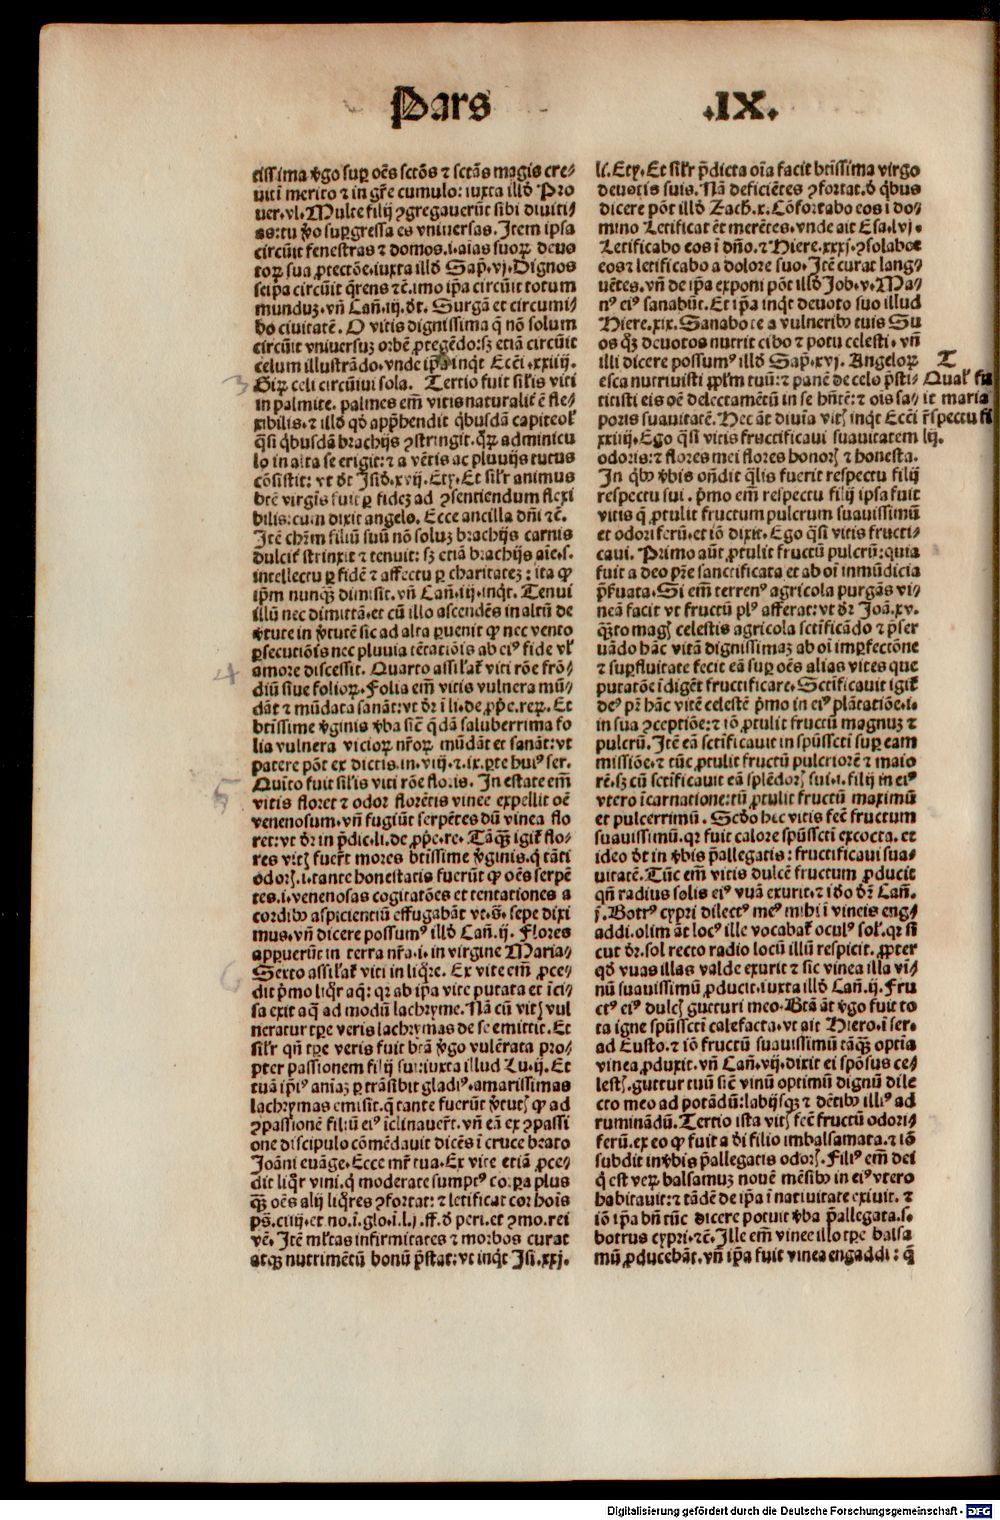 Pars .IX.
tissima v̓go suꝑ oēs sctōs ⁊ sctās magis cre⸗
uit ī merito ⁊ in gr̄e cumulo: iuxta illd̓ Pro
uer.vl. Multe filij ꝯgregauerūt sibi diuiti⸗
as: tu v̓o suꝑgressa es vniuersas. Item ipsa
circūit fenestras ⁊ domos.i.aīas suoꝝ deuo
toꝝ sua ꝓtectōe. iuxta illd̓ Sap̄.vj. Dignos
seip̄a circūit q̄rens ⁊c̄. imo ip̄a circūit totum
munduꝫ. vn̄ Cañ.iij. d̓t. Surgā et circumi⸗
bo ciuitatē. O vitis dignissima q̄ nō solum
circūit vniuersuꝫ orbē ꝓtegēdo: sꝫ etiā circūit
celum illustrādo. vnde ip̄a inq̇t Eccī.xxiiij.
Giꝝ celi circūiui sola. Tertio fuit sil̓is viti
in palmite. palmes em̄ vitis naturalit̓ ē fle⸗
xibilis. ⁊ illd̓ qd̓ app̄hendit q̇busdā capiteol̓
q̄si q̇busdā brachijs ꝯstringit. q̇ꝝ adminicu
lo in alta se erigit: ⁊ a vētis ac pluuijs tutus
cōsistit: vt d̓t Jsid̓.xvij. Etx̄. Et sil̓r animus
btē virgīs fuit ꝑ fideꝫ ad ꝯsentiendum flexi
bilis: cum dixit angelo. Ecce ancilla dn̄i ⁊c̄.
Jtē ch̄m filiū suū nō soluꝫ brachijs carnis
dulcit̓ strinxit ⁊ tenuit: sꝫ etiā brachijs aīe.s.
intellectu ꝑ fidē ⁊ affectu ꝑ charitateꝫ: ita ꝙ
ip̄m nunqꝫ dimisit. vn̄ Cañ.iij. inq̇t. Tenui
illū nec dimittā. et cū illo ascendēs in altū de
v̓tute in v̓tutē sic ad alta ꝑuenit ꝙ nec vento
ꝑsecutiōis nec pluuia tētatiōis ab eiꝰ fide vl̓
amore discessit. Quarto assil̓at̓ viti rōe frō⸗
diū siue folioꝝ. Folia em̄ vitis vulnera mū⸗
dāt ⁊ mūdata sanāt: vt d̓r ī li. de ꝓp̄e. reꝝ. Et
btīssime v̓ginis v̓ba sic̄ q̄dā saluberrima fo
lia vulnera vicioꝝ nr̄oꝝ mūdāt et sanāt: vt
patere pōt ex dictis in.viij.⁊.ix.ꝑte huiꝰ ser.
Quīto fuit sil̓is viti rōe floris. In estate em̄
vitis floret ⁊ odor florētis vinee expellit oē
venenosum. vn̄ fugiūt serpētes dū vinea flo
ret: vt d̓r in p̄dic. li. de ꝓp̄e. re. Tāqꝫ igit̓ flo⸗
res vitꝭ fuer̄t mores btīssime v̓ginis. q̇ tāti
odorꝭ.i.tante honestatis fuerūt ꝙ oēs serpē
tes.i.venenosas cogitatōes et tentationes a
cordibꝰ aspicientiū effugabāt vt.s̄. sepe dixi
mus. vn̄ dicere possumꝰ illd̓ Cañ.ij. Flores
apꝑuerūt in terra nr̄a.i.in virgine Maria⸗
Sexto assil̓at̓ viti in liq̄re. Ex vite em̄ ꝓce⸗
dit p̓mo liq̇r aq̄: qꝛ ab ip̄a vite putata et īci⸗
sa exit aq̄ ad modū lachryme. Nā cū vitꝭ vul
neratur tꝑe veris lachrymas de se emittit. Et
sil̓r qn̄ tꝑe veris fuit btā v̓go vulērata pro⸗
pter passionem filij sui: iuxta illud Lu.ij. Et
tuā ip̄iꝰ aīaꝫ ꝑtrāsibit gladiꝰ. amarissimas
lachrymas emisit. q̄ tante fuerūt v̓tutꝭ ꝙ ad
ꝯpassionē filiū eiꝰ īclinauer̄t. vn̄ eā ex ꝯpassi
one discipulo cōmēdauit dicēs ī cruce brato
Joāni euāge. Ecce mr̄ tua. Ex vite etiā ꝓce⸗
dit liq̇r vini. q̇ moderate sumptꝰ corꝑa plus
qꝫ oēs alij liq̇res ꝯfortat: ⁊ letificat cor hoīs
ps̄.ciij. et no. ī. glo. ī. l.j. ff. d̓ peri. et ꝯmo. rei
vē. Jtē ml̓tas infirmitates ⁊ morbos curat
atqꝫ nutrimētū bonū p̄stat: vt inq̇t Jsi.xxj.
li. Etx̄. Et sil̓r p̄dicta oīa facit btīssima virgo
deuotis suis. Nā deficiētes ꝯfortat. d̓ q̇bus
dicere pōt illd̓ Zach̓.x. Cōfortabo eos ī do⸗
mino Letificat ēt merētes. vnde ait Esa.lvj.
Letificabo eos ī dn̄o. ⁊ Hiere.xxxj. ꝯsolabor
eos ⁊ letificabo a dolore suo. Jtē curat lang⸗
uētes. vn̄ de ip̄a exponi pōt illd̓ Job.v. Ma⸗
nꝰ eiꝰ sanabūt. Et ip̄a inq̇t deuoto suo illud
Hiere.xix. Sanabo te a vulneribꝰ tuis Su
os qꝫ deuotos nutrit cibo ⁊ potu celesti. vn̄
illi dicere possumꝰ illd̓ Sap̄.xvj. Angeloꝝ
esca nutriuisti ꝓpl̓m tuū: ⁊ panē de celo p̄sti⸗
titisti eis oē delectamētū in se hn̄tē: ⁊ ois sa⸗
poris suauitatē. Hec āt diuīa vitꝭ inq̇t Eccī
xxiiij. Ego q̄si vitis fructificaui suauitatem
odoris: ⁊ flores mei flores honorꝭ ⁊ honesta.
In q̇bꝰ v̓bis on̄dit q̄lis fuerit respectu filij
respectu sui. p̓mo em̄ respectu filij ipsa fuit
vitis q̄ ꝓtulit fructum pulcrum suauissimū
et odoriferū. et iō dixit. Ego q̄si vitis fructi⸗
caui. Primo aūt ꝓtulit fructū pulcrū: quia
fuit a deo pr̄e sanctificata et ab oī inmūdicia
p̄s̓uata. Si em̄ terrenꝰ agricola purgās vi⸗
neā facit vt fructū plꝰ afferat: vt d̓r Joā.xv.
qꝫto magꝭ celestis agricola sctīficādo ⁊ p̄ser
uādo hāc vitā dignissimaꝫ ab oī imꝑfectōne
⁊ suꝑfluitate fecit eā suꝑ oēs alias vites que
putatōe īdigēt fructificare. Sctīficauit igit̓
deꝰ pr̄ hāc vitē celestē p̓mo in eiꝰ plātatiōe.i.
in sua ꝯceptiōe: ⁊ iō ꝓtulit fructū magnuꝫ ⁊
pulcrū. Jtē eā sctīficauit in spūsscti suꝑ eam
missiōe. ⁊ tūc ꝓtulit fructū pulcriorē ⁊ maio
rē. sꝫ cū sctīficauit eā splēdorꝭ sui.i. filij in eiꝰ
vtero īcarnatione: tū ꝓtulit fructū maximū
et pulcerrimū. Scd̓o hec vitis fec̄ fructum
suauissimū. qꝛ fuit calore spūsscti excocta. et
ideo d̓t in v̓bis p̄allegatis: fructificaui sua⸗
uitatē. Tūc em̄ vitis dulcē fructum ꝓducit
qn̄ radius solis eiꝰ vuā exurit. ⁊ iō d̓r Cañ.
j. Botrꝰ cypri dilectꝰ meꝰ mihi ī vineis eng⸗
addi. olim āt locꝰ ille vocabat̓ oculꝰ sol̓. qꝛ si
cut d̓r. sol recto radio locū illū respicit. ꝓpter
qd̓ vuas illas valde exurit ⁊ sic vinea illa vi⸗
nū suauissimū ꝓducit. iuxta illd̓ Cañ.ij. Fru
ctꝰ eiꝰ dulcꝭ gutturi meo. Btā āt v̓go fuit to
ta igne spūsscti calefacta. vt ait Hiero. ī ser.
ad Eusto. ⁊ iō fructū suauissimū tāqꝫ optīa
vinea ꝓduxit. vn̄ Cañ.vij. dixit ei spōsus ce⸗
lestꝭ. guttur tuū sic̄ vinū optimū dignū dile
cto meo ad potādū: labijsqꝫ ⁊ dētibꝰ illiꝰ ad
ruminādū. Tertio ista vitꝭ fec̄ fructū odori⸗
ferū. ex eo ꝙ fuit a d̓i filio imbalsamata. ⁊ iō
subdit in v̓bis p̄allegatis odorꝭ. Filiꝰ em̄ dei
q̇ est veꝝ balsamuꝫ nouē mēsibꝰ in eiꝰ vtero
habitauit: ⁊ tādē de ip̄a ī natiuitate exiuit. ⁊
iō ip̄a bn̄ tūc dicere potuit v̓ba p̄allegata.s.
botrus cypri.⁊c̄. Jlle em̄ vinee illo tꝑe balsa
mū ꝓducebāt. vn̄ ip̄a fuit vinea engaddi: q̄
T
Qual̓ fu
it maria
r̄spectu fi
lij.
3
4
5
6
Digitalisierung gefördert durch die Deutsche Forschungsgemeinschaft - DFG